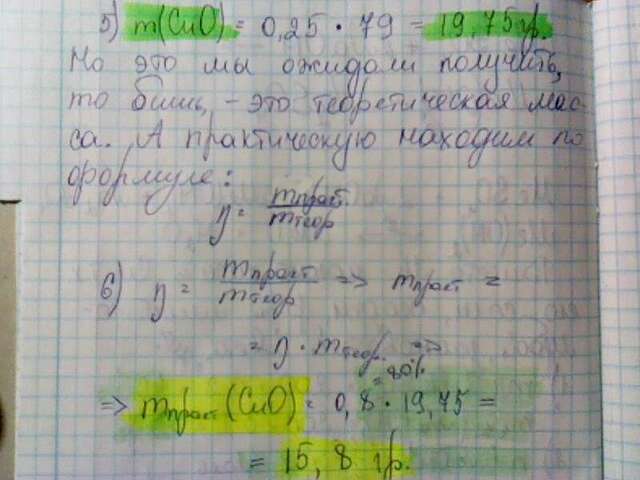 5) m(CuO) = 0,25 · 79 = 19,75 гр.
Но это мы ожидали получить,
то бишь, - это теоретическая мас-
са. А практическую находим по
формуле:
η = mпракт. / mтеор
6) η = mпракт / mтеор => mпракт =
= η · mтеор. =>
= 80%
=> mпракт (CuO) = 0,8 · 19,75 =
= 15,8 гр.